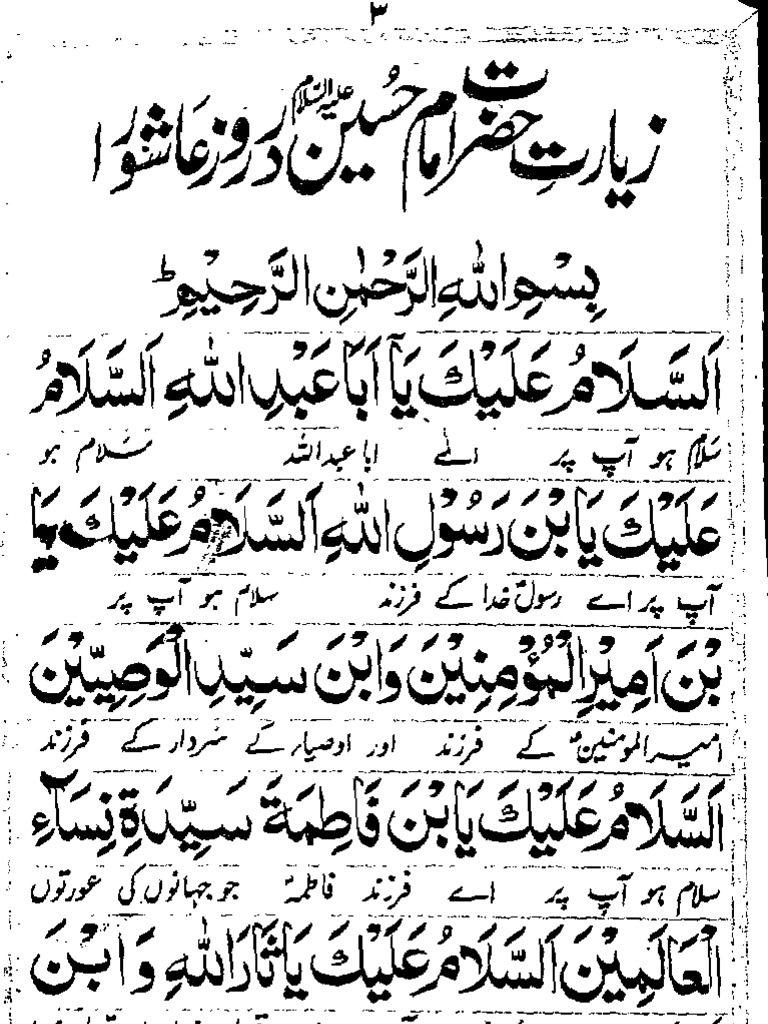 ۳
زیارتِ حضرت امام حسین علیہ السلام در روزِ عاشورا
بِسْمِ اللهِ الرَّحْمٰنِ الرَّحِیْمِ ط
اَلسَّلَامُ عَلَیْكَ یَآ اَبَا عَبْدِ اللهِ اَلسَّلَامُ
سلام ہو آپ پر اے ابا عبد اللہ سلام ہو
عَلَیْكَ یَا بْنَ رَسُوْلِ اللهِ اَلسَّلَامُ عَلَیْكَ یَا
آپ پر اے رسولؐ خدا کے فرزند سلام ہو آپ پر
بْنَ اَمِیْرِ الْمُؤْمِنِیْنَ وَ ابْنَ سَیِّدِ الْوَصِیِّیْنَ
امیر المومنینؑ کے فرزند اور اوصیاء کے سردار کے فرزند
اَلسَّلَامُ عَلَیْكَ یَا بْنَ فَاطِمَةَ سَیِّدَةِ نِسَآءِ
سلام ہو آپ پر اے فرزند فاطمہؑ جو جہانوں کی عورتوں
الْعَالَمِیْنَ اَلسَّلَامُ عَلَیْكَ یَا ثَارَ اللهِ وَ ابْنَ